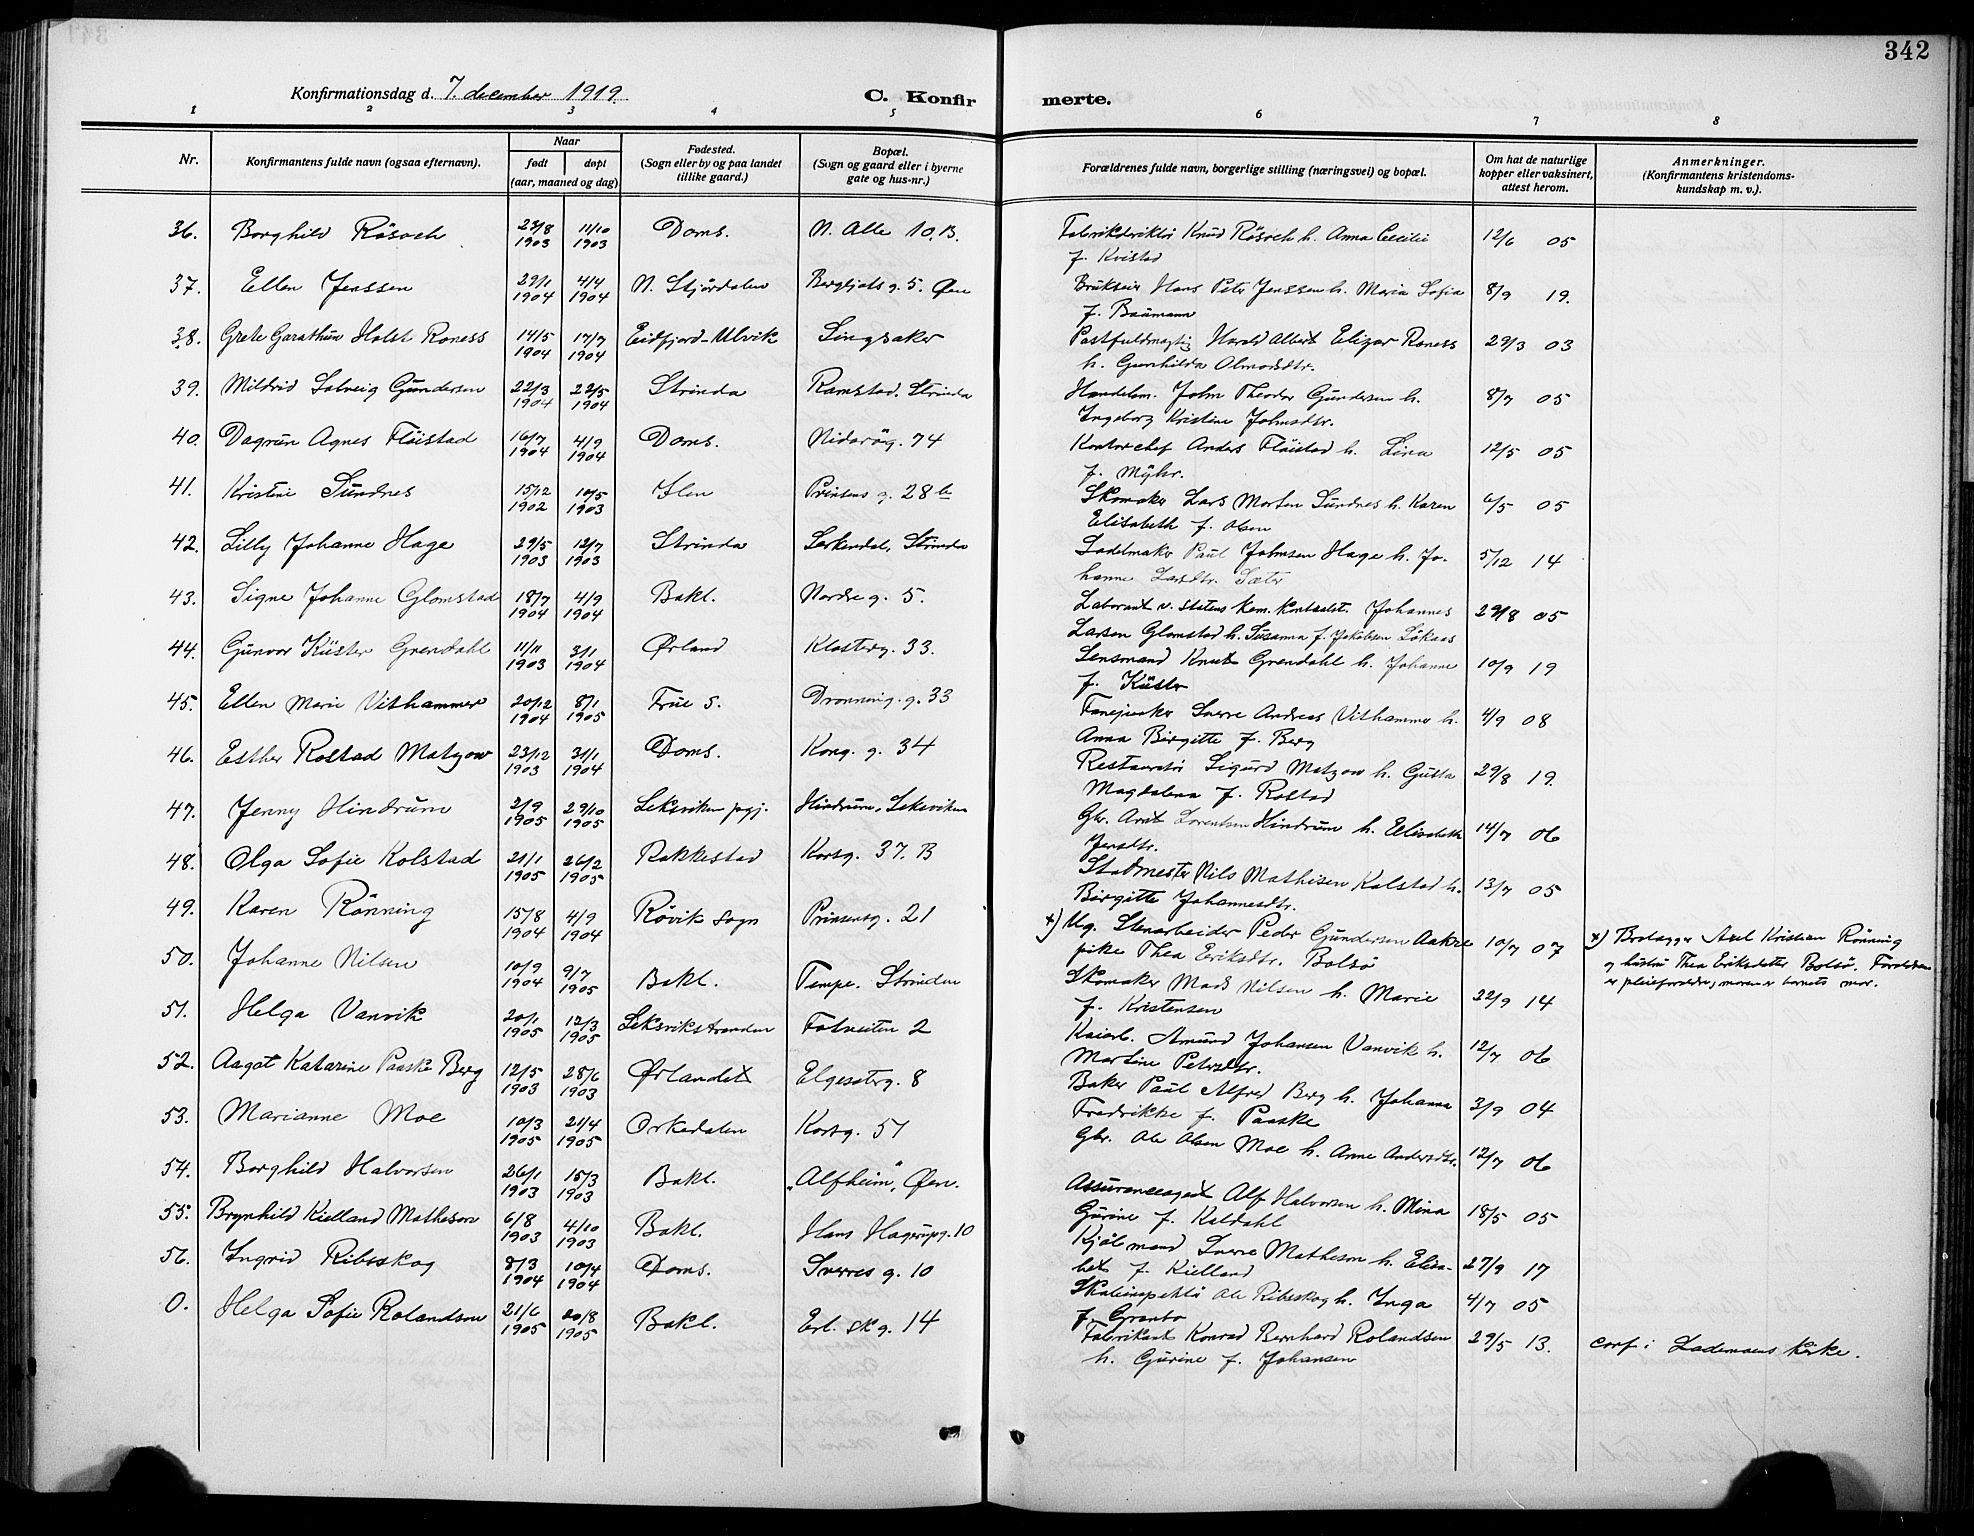 342
Konfirmationsdag d. 7. december 1919. C. Konfirmerte.
1 2 3 4 5 6 7 8
Nr. Konfirmantens fulde navn (ogsaa efternavn). Naar født døpt (aar, maaned og dag) Fødested. (Sogn eller by og paa landet tillike gaard.) Bopæl. (Sogn og gaard eller i byerne gate og hus-nr.) Forældrenes fulde navn, borgerlige stilling (næringsvei) og bopæl. Om hat de naturlige kopper eller vaksinert, attest herom. Anmerkninger. (Konfirmantens kristendomskundskap m. v.).
36. Borghild Rösoch 23/8 1903 11/10 1903 Doms. N. Alle 10.B. Knud Rösoch h. Anna Cecilie f. Kvistad 12/6 05
37. Ellen Jenssen 29/1 1904 4/4 1904 N. Stjördalen Bergljots g. 5. Øen Brukseier Hans Peter Jenssen h. Maria Sofia f. Baumann 8/9 19.
38. Grete Garathun Holst Roness 14/5 1904 17/7 1904 Eidfjord-Ulvik Singsaker Postfuldmægtig Harald Albert Elizar Roness h. Gunhilda Olmodsdtr. 29/3 03
39. Mildrid Solveig Gundersen 22/3 1904 22/5 1904 Strinda Ramstad, Strinda Handelsm. John Theodor Gundersen h. Ingeborg Kristine Johnsdtr. 8/7 05
40. Dagrun Agnes Flöistad 16/7 1904 4/9 1904 Doms. Nidarög. 74 Kontorchef Anders Flöistad h. Lina f. Myhr. 12/5 05
41. Kristine Sundnes 15/12 1902 10/5 1903 Ilen Prinsens g. 28 b Skomaker Lars Morten Sundnes h. Karen Elisabeth f. Olsen 6/5 05
42. Lilly Johanne Hage 29/5 1903 12/7 1903 Strinda Lerkendal, Strinda Sadelmaker Paul Johnsen Hage h. Johanne Larsdtr. Sæter 5/12 14
43. Signe Johanne Glomstad 18/7 1904 4/9 1904 Bakl. Nordre g. 5. Laborant v. Statens kem. kontrolst. Johannes Larsen Glomstad h. Susanna f. Jakobsen Lökaas 29/8 05
44. Gunvor Küster Grendahl 11/11 1903 3/1 1904 Ørland Klosterg. 33. Lensmand Knut Grendahl h. Johanne f. Küster 10/9 19
45. Ellen Marie Vithammer 20/12 1904 8/1 1905 Frue s. Dronning. g. 33 Sverre Andreas Vithammer h. Anna Birgitte f. Berg 4/9 08
46. Esther Rostad Matzow 23/12 1903 31/1 1904 Doms. Kong. g. 34 Restauratör Sigurd Matzow h. Gusta Magdalena f. Rostad 29/8 19.
47. Jenny Hindrum 2/9 1905 29/10 1905 Leksviken pgj. Hindrum, Leksviken Gbr. Arnt Lorentsen Hindrum h. Elisabeth Jensdtr. 14/7 06
48. Olga Sofie Kolstad 21/1 1905 26/2 1905 Rakkestad Korsg. 37. B Nils Mathisen Kolstad h. Birgitte Johannesdtr. 13/7 05
49. Karen Rönning 15/8 1904 4/9 1904 Rövik sogn Prinsensg. 21 x) Ug. Stenarbeider Peder Gundersen Aakre pike Thea Eriksdtr. Bolsö 10/7 07 x) Brolægger Axel Kristian Rönning og hustru Thea Eriksdatter Bolsö. Forældrene er pleieforældre; moren er barnets mor.
50. Johanne Nilsen 10/9 1904 9/7 1905 Bakl. Tempe. Strinden Skomaker Mads Nilsen h. Marie f. Kristensen 22/9 14
51. Helga Vanvik 20/1 1905 12/3 1905 Leksvikstranden Totveiten 2 Kaiarb. Amund Johansen Vanvik h. Martine Petersdtr. 12/7 06
52. Aagot Katarine Paaske Berg 12/5 1903 28/6 1903 Ørlandet Elgesæterg. 8 Baker Paul Alfred Berg h. Johanna Fredrikke f. Paaske 3/9 04
53. Marianne Moe 10/3 1905 21/4 1905 Orkedalen Korsg. 51 Gbr. Ole Olsen Moe h. Anne Andersdtr. 12/7 06
54. Borghild Halvorsen 26/1 1903 15/3 1903 Bakl. „Alfheim", Øen. Assuranceagent Alf Halvorsen h. Mina Gurine f. Kaldahl 18/5 05
55. Brynhild Kielland Matheson 6/8 1903 4/10 1903 Bakl. Hans Hagerupsg. 10 Kjöbmand Sverre Matheson h. Elisabet f. Kielland 27/9 17
56. Ingrid Ribsskog 8/3 1904 10/4 1904 Doms. Sverres g. 10 Skoleinspektör Ole Ribsskog h. Inga f. Granbo 4/7 05
0. Helga Sofie Rolandsen 21/6 1905 20/8 1905 Bakl. Erl. sk g. 14 Fabrikant Konrad Bernhard Rolandsen h. Gurine f. Johansen 29/5 13. conf. i Lademoens kirke.